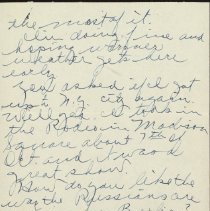 the most of it.
I'm doing fine and
hoping warmer
weather gets here
early.
You asked if I got
up to N.Y. city again.
Well yes. I took in
the Rodeo in Madison
Square about 7th of
Oct and it was a
great show.
How do you like the
way the Russians are